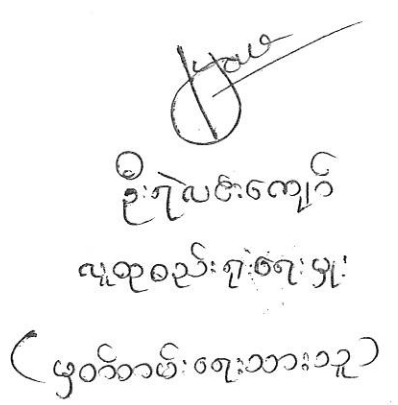 ဦးရဲလင်းကျော်
လူထုစည်းရုံးရေးမှူး
(မှတ်တမ်းရေးသားသူ)